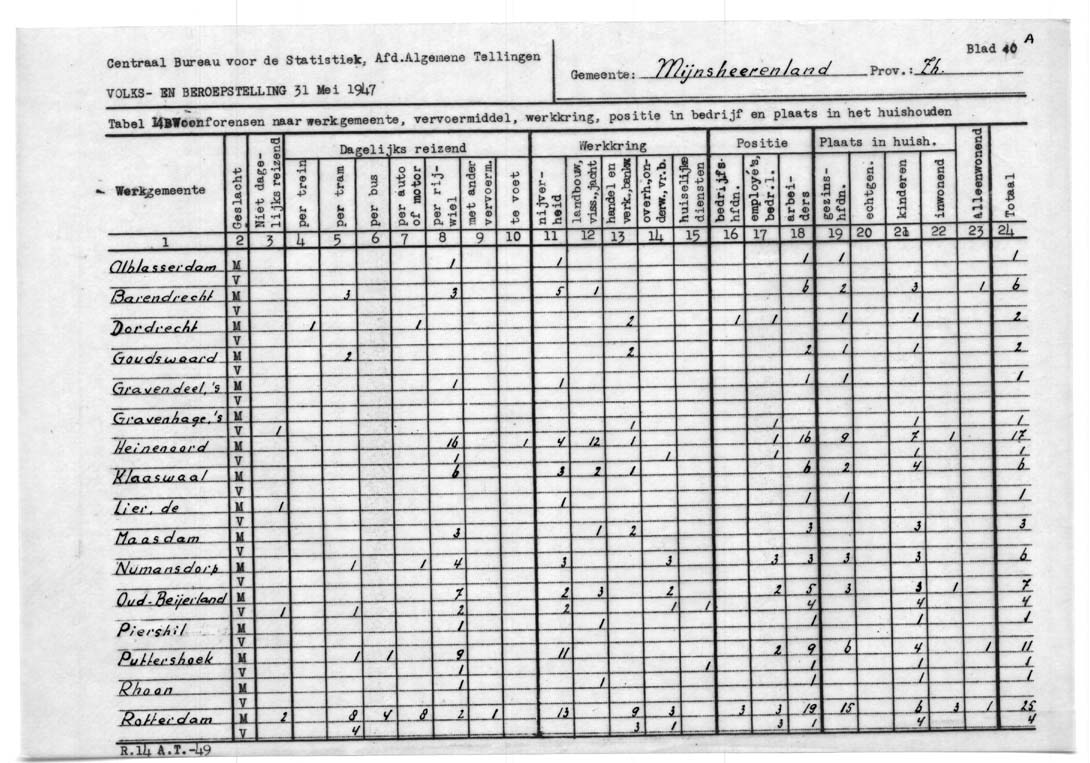 A
Centraal Bureau voor de Statistiek, Afd.Algemene Tellingen
Blad 40
Gemeente: Mijnsheerenland Prov.: Zh.
VOLKS- EN BEROEPSTELLING 31 Mei 1947
Tabel 14B Woonforensen naar werkgemeente, vervoermiddel, werkkring, positie in bedrijf en plaats in het huishouden
Werkgemeente Geslacht Niet dage-lijks reizend Dagelijks reizend Werkkring Positie Plaats in huish. alleenwonend Totaal
per trein per tram per bus per auto of motor per rij-wiel met ander vervoerm. te voet nijver-heid landbouw, viss.,jacht handel en verk.,bankw. overh.,on-derw.,vr.b. huiselijke diensten bedrijfs-hfdn. employé's, bedr.l. arbei-ders gezins-hfdn. echtgen. kinderen inwonend
1 2 3 4 5 6 7 8 9 10 11 12 13 14 15 16 17 18 19 20 21 22 23 24
Alblasserdam M 1 1 1 1 1
V
Barendrecht M 3 3 5 1 6 2 3 1 6
V
Dordrecht M 1 1 2 1 1 1 1 2
V
Goudswaard M 2 2 2 1 1 2
V
Gravendeel,'s M 1 1 1 1 1
V
Gravenhage,'s M
V 1 1 1 1 1
Heinenoord M 16 1 4 12 1 1 16 9 7 1 17
V 1 1 1 1 1
Klaaswaal M 6 3 2 1 6 2 4 6
V
Lier, de M 1 1 1 1 1
V
Maasdam M 3 1 2 3 3 3
V
Numansdorp M 1 1 4 3 3 3 3 3 3 6
V
Oud-Beijerland M 7 2 3 2 2 5 3 3 1 7
V 1 1 2 2 1 1 4 4 4
Piershil M 1 1 1 1 1
V
Puttershoek M 1 1 9 11 2 9 6 4 1 11
V 1 1 1 1 1
Rhoon M 1 1 1 1 1
V
Rotterdam M 2 8 4 8 2 1 13 9 3 3 3 19 15 6 3 1 25
V 4 3 1 3 1 4 4
R.14 A.T.-49